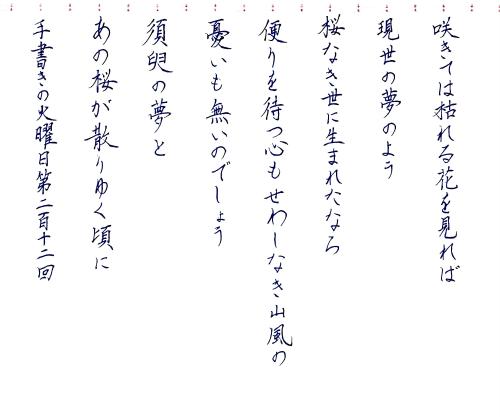 咲きては枯れる花を見れば
現世の夢のよう
桜なき世に生まれたなら
便りを待つ心もせわしなき山風の
憂いも無いのでしょう
須臾の夢と
あの桜が散りゆく頃に
手書きの火曜日第二百十二回